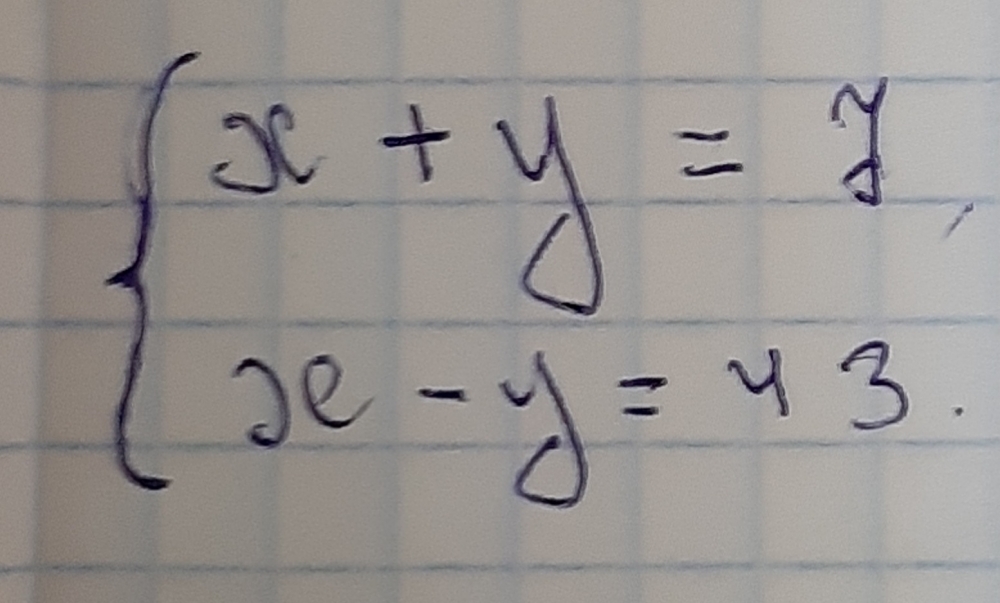 x + y = 7,
x - y = 43.